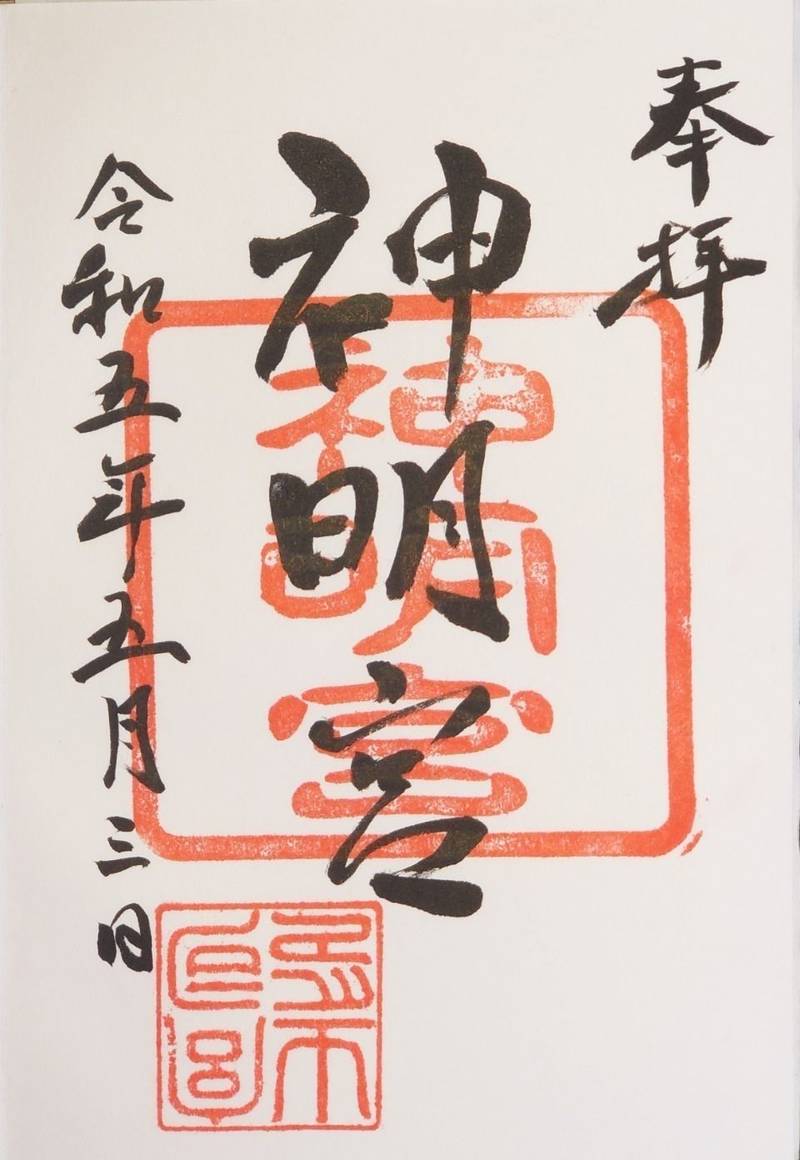 奉拝
神明宮
令和五年五月三日
神明宮